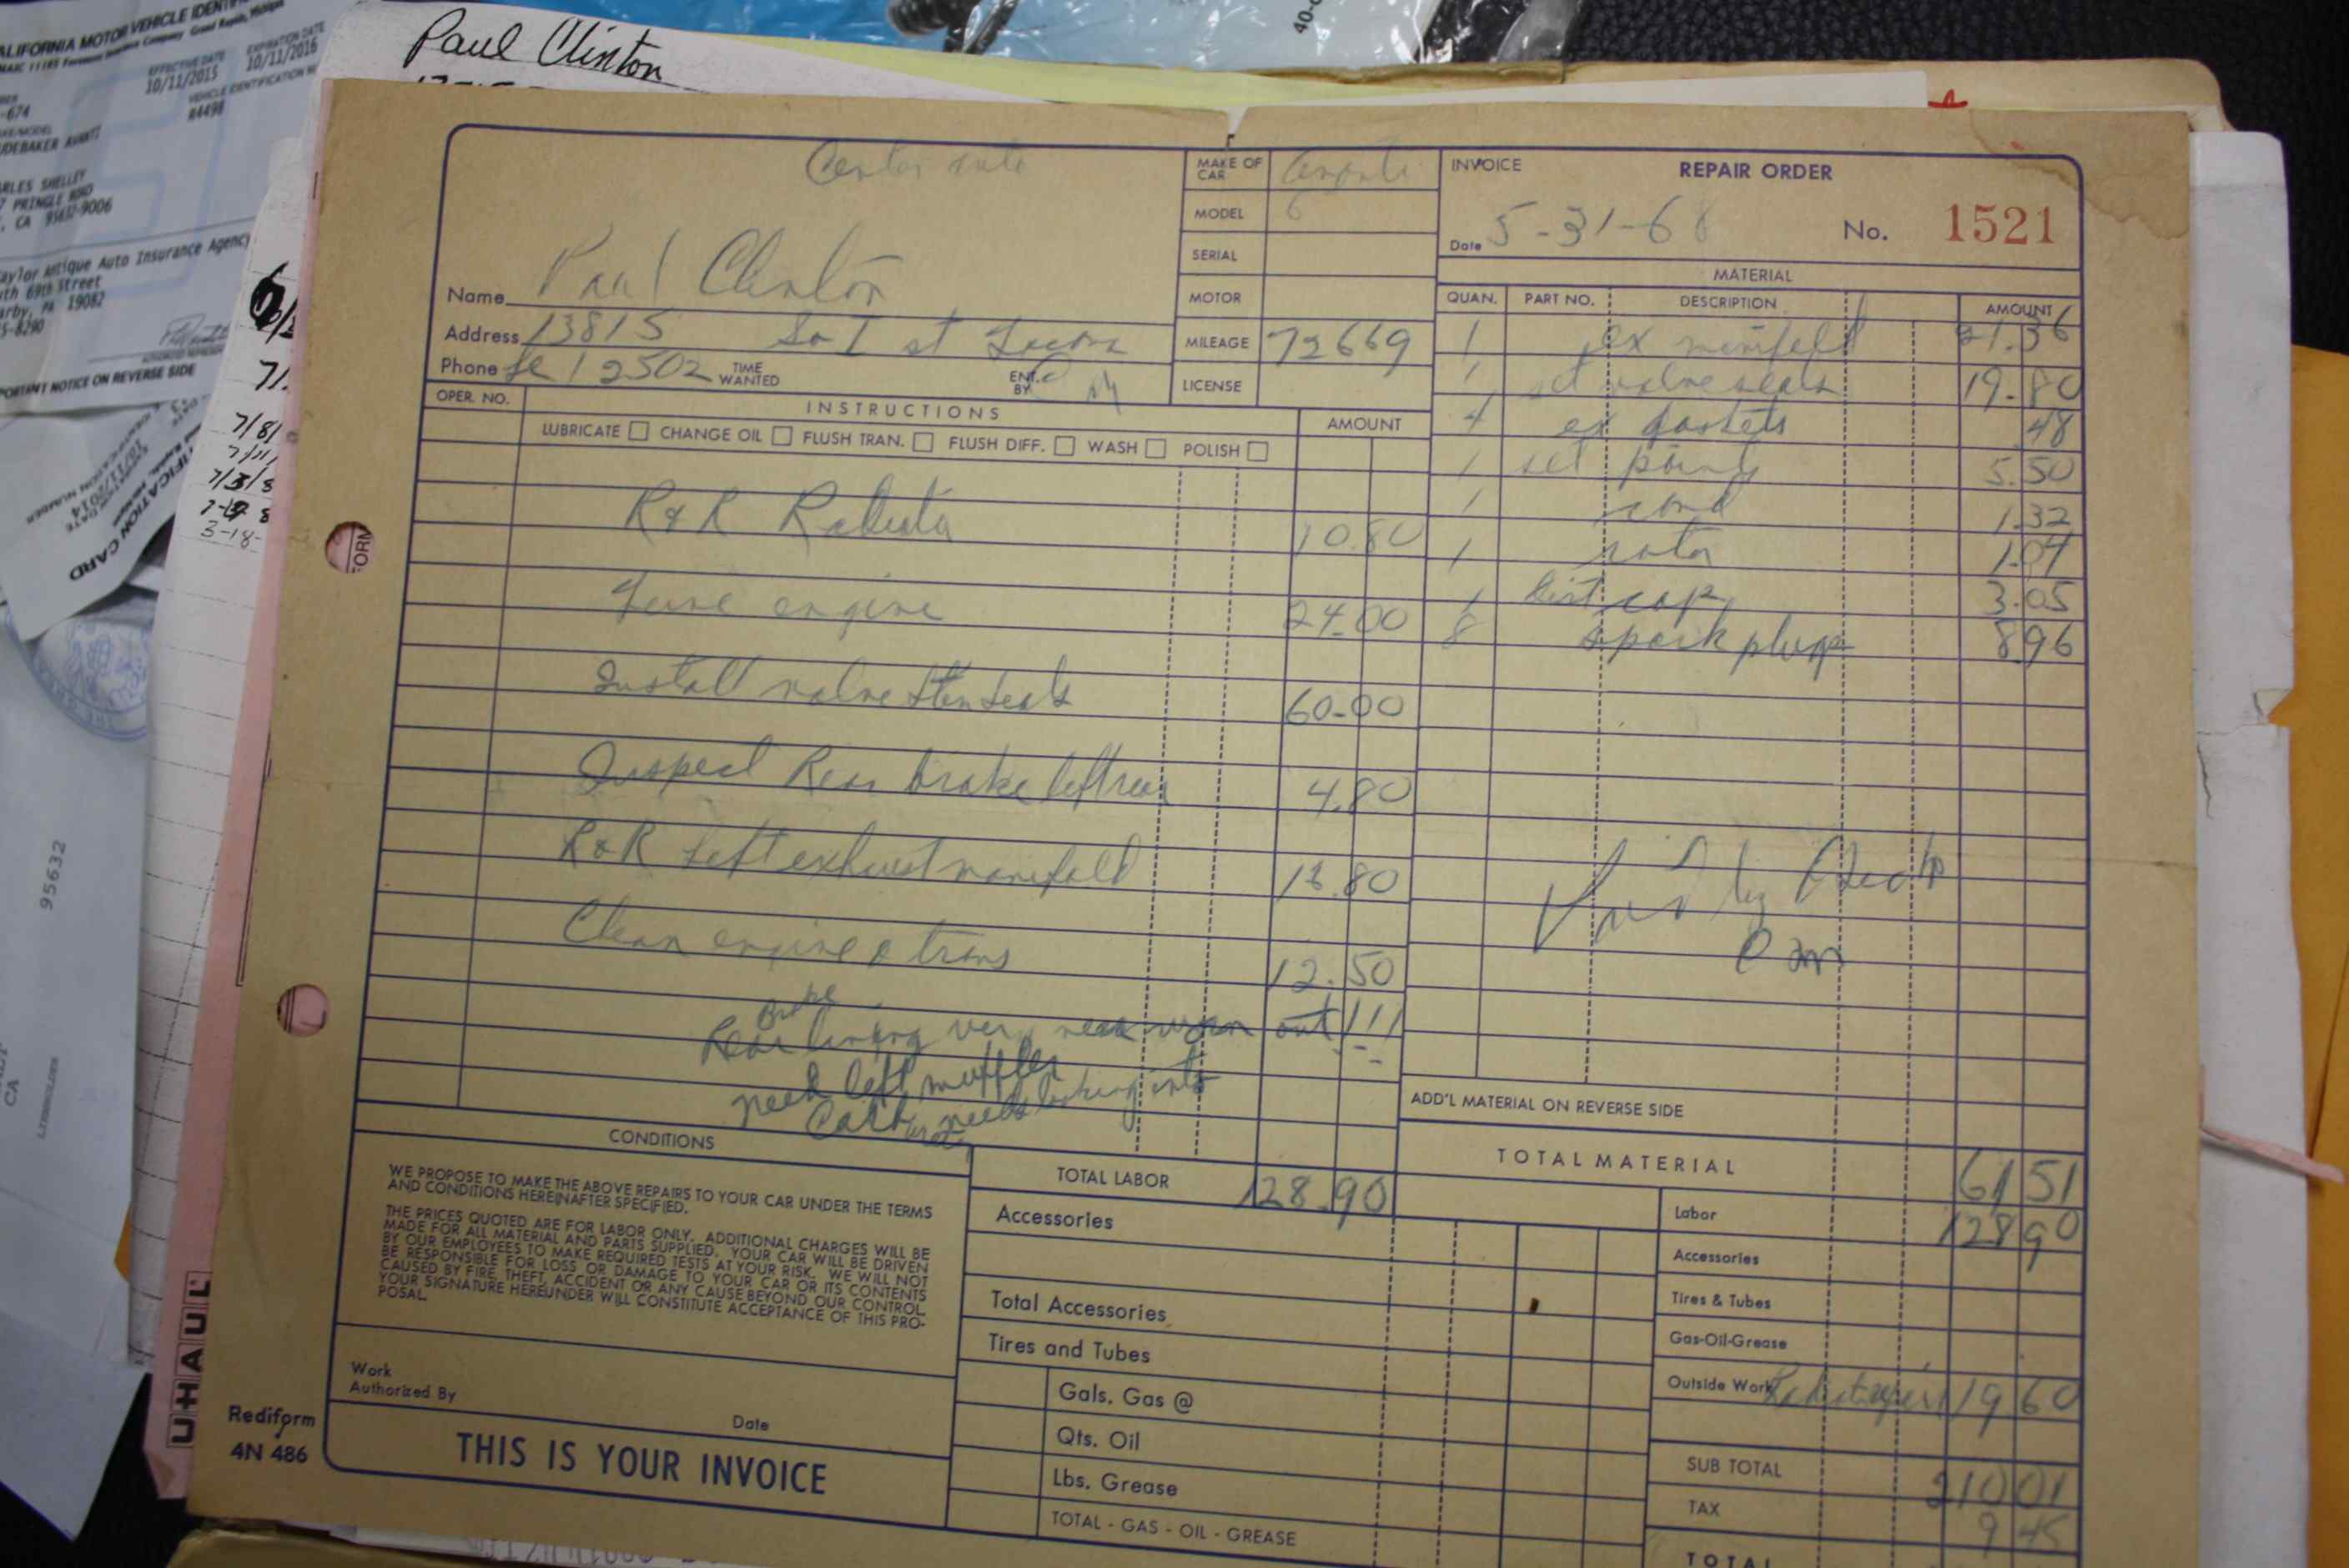 CALIFORNIA MOTOR VEHICLE IDENTIF
NAIC 11185 Foremost Insurance Company Grand Rapids, Michigan
EFFECTIVE DATE
EXPIRATION DATE
10/11/2015
10/11/2016
VEHICLE IDENTIFICATION N
R4498
-674
UDEBAKER AVANTI
RLES SHELLEY
7 PRINGLE ROAD
, CA 95632-9006
aylor Antique Auto Insurance Agency
th 69th Street
arby, PA 19082
5-8290
PORTANT NOTICE ON REVERSE SIDE
95632
LIENHOLDER
CA
7/8/
7/3/8
3-18-
UHAUL
FORM
40-
Paul Clinton
Center auto
MAKE OF CAR
MODEL 6
SERIAL
MOTOR
MILEAGE 72669
LICENSE
INVOICE
REPAIR ORDER
Date 5-31-68
No. 1521
Name Paul Clinton
Address 13815 So I st
Phone Le 1 2502 TIME WANTED ENT. BY
MATERIAL
QUAN. PART NO. DESCRIPTION AMOUNT
1 ex manifold 21.36
1 set valve seals 19.80
4 ex gaskets .48
1 set points 5.50
1 cond 1.32
1 rotor 1.04
1 Dist cap 3.05
8 spark plugs 8.96
OPER. NO. INSTRUCTIONS AMOUNT
LUBRICATE CHANGE OIL FLUSH TRAN. FLUSH DIFF. WASH POLISH
R&R Radiator 10.80
Tune engine 24.00
Install valve stem seals 60.00
Inspect Rear brake left rear 4.80
R&R Left exhaust manifold 16.80
Clean engine & trans 12.50
Brake
Rear lining very near worn out!!!
need left muffler
Carb needs looking into
ADD'L MATERIAL ON REVERSE SIDE
TOTAL MATERIAL 61 51
CONDITIONS
WE PROPOSE TO MAKE THE ABOVE REPAIRS TO YOUR CAR UNDER THE TERMS
AND CONDITIONS HEREINAFTER SPECIFIED.
THE PRICES QUOTED ARE FOR LABOR ONLY. ADDITIONAL CHARGES WILL BE
MADE FOR ALL MATERIAL AND PARTS SUPPLIED. YOUR CAR WILL BE DRIVEN
BY OUR EMPLOYEES TO MAKE REQUIRED TESTS AT YOUR RISK. WE WILL NOT
BE RESPONSIBLE FOR LOSS OR DAMAGE TO YOUR CAR OR ITS CONTENTS
CAUSED BY FIRE, THEFT, ACCIDENT OR ANY CAUSE BEYOND OUR CONTROL.
YOUR SIGNATURE HEREUNDER WILL CONSTITUTE ACCEPTANCE OF THIS PRO-
POSAL.
Work
Authorized By
Date
Rediform
4N 486
THIS IS YOUR INVOICE
TOTAL LABOR 128.90
Accessories
Total Accessories
Tires and Tubes
Gals. Gas @
Qts. Oil
Lbs. Grease
TOTAL - GAS - OIL - GREASE
Labor 128 90
Accessories
Tires & Tubes
Gas-Oil-Grease
Outside Work Radiat repair 19 60
SUB TOTAL 210 01
TAX 9 45
TOTAL